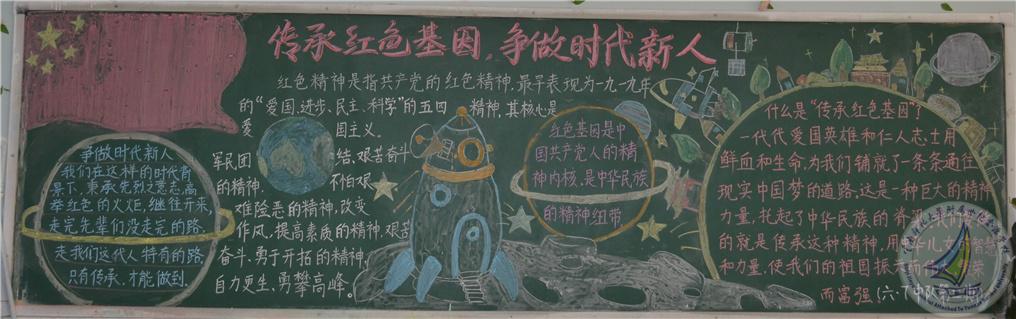 传承红色基因，争做时代新人
红色精神是指共产党的红色精神，最早表现为一九一九年
的“爱国、进步、民主、科学”的五四 精神，其核心是
爱 国主义。
军民团 结、艰苦奋斗
的精神， 不怕艰
难险恶的精神，改变
作风，提高素质的精神，艰苦
奋斗，勇于开拓的精神，
自力更生，勇攀高峰。
争做时代新人
我们在这样的时代背
景下，秉承先烈之意志，高
举红色的火炬，继往开来，
走完先辈们没走完的路，
走我们这代人特有的路
只有传承，才能做到。
红色基因是中
国共产党人的精
神内核，是中华民族
的精神纽带
什么是“传承红色基因”？
一代代爱国英雄和仁人志士用
鲜血和生命，为我们铺就了一条条通往
现实中国梦的道路，这是一种巨大的精神
力量，托起了中华民族的脊
的就是传承这种精神，用中华儿女的智慧
和力量，使我们的祖国振
而富强（六·丁中队